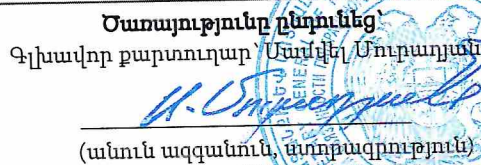 Ծառայությունը ընդունեց՝
Գլխավոր քարտուղար՝ Սամվել Մուրադյան
(անուն ազգանուն, ստորագրություն)